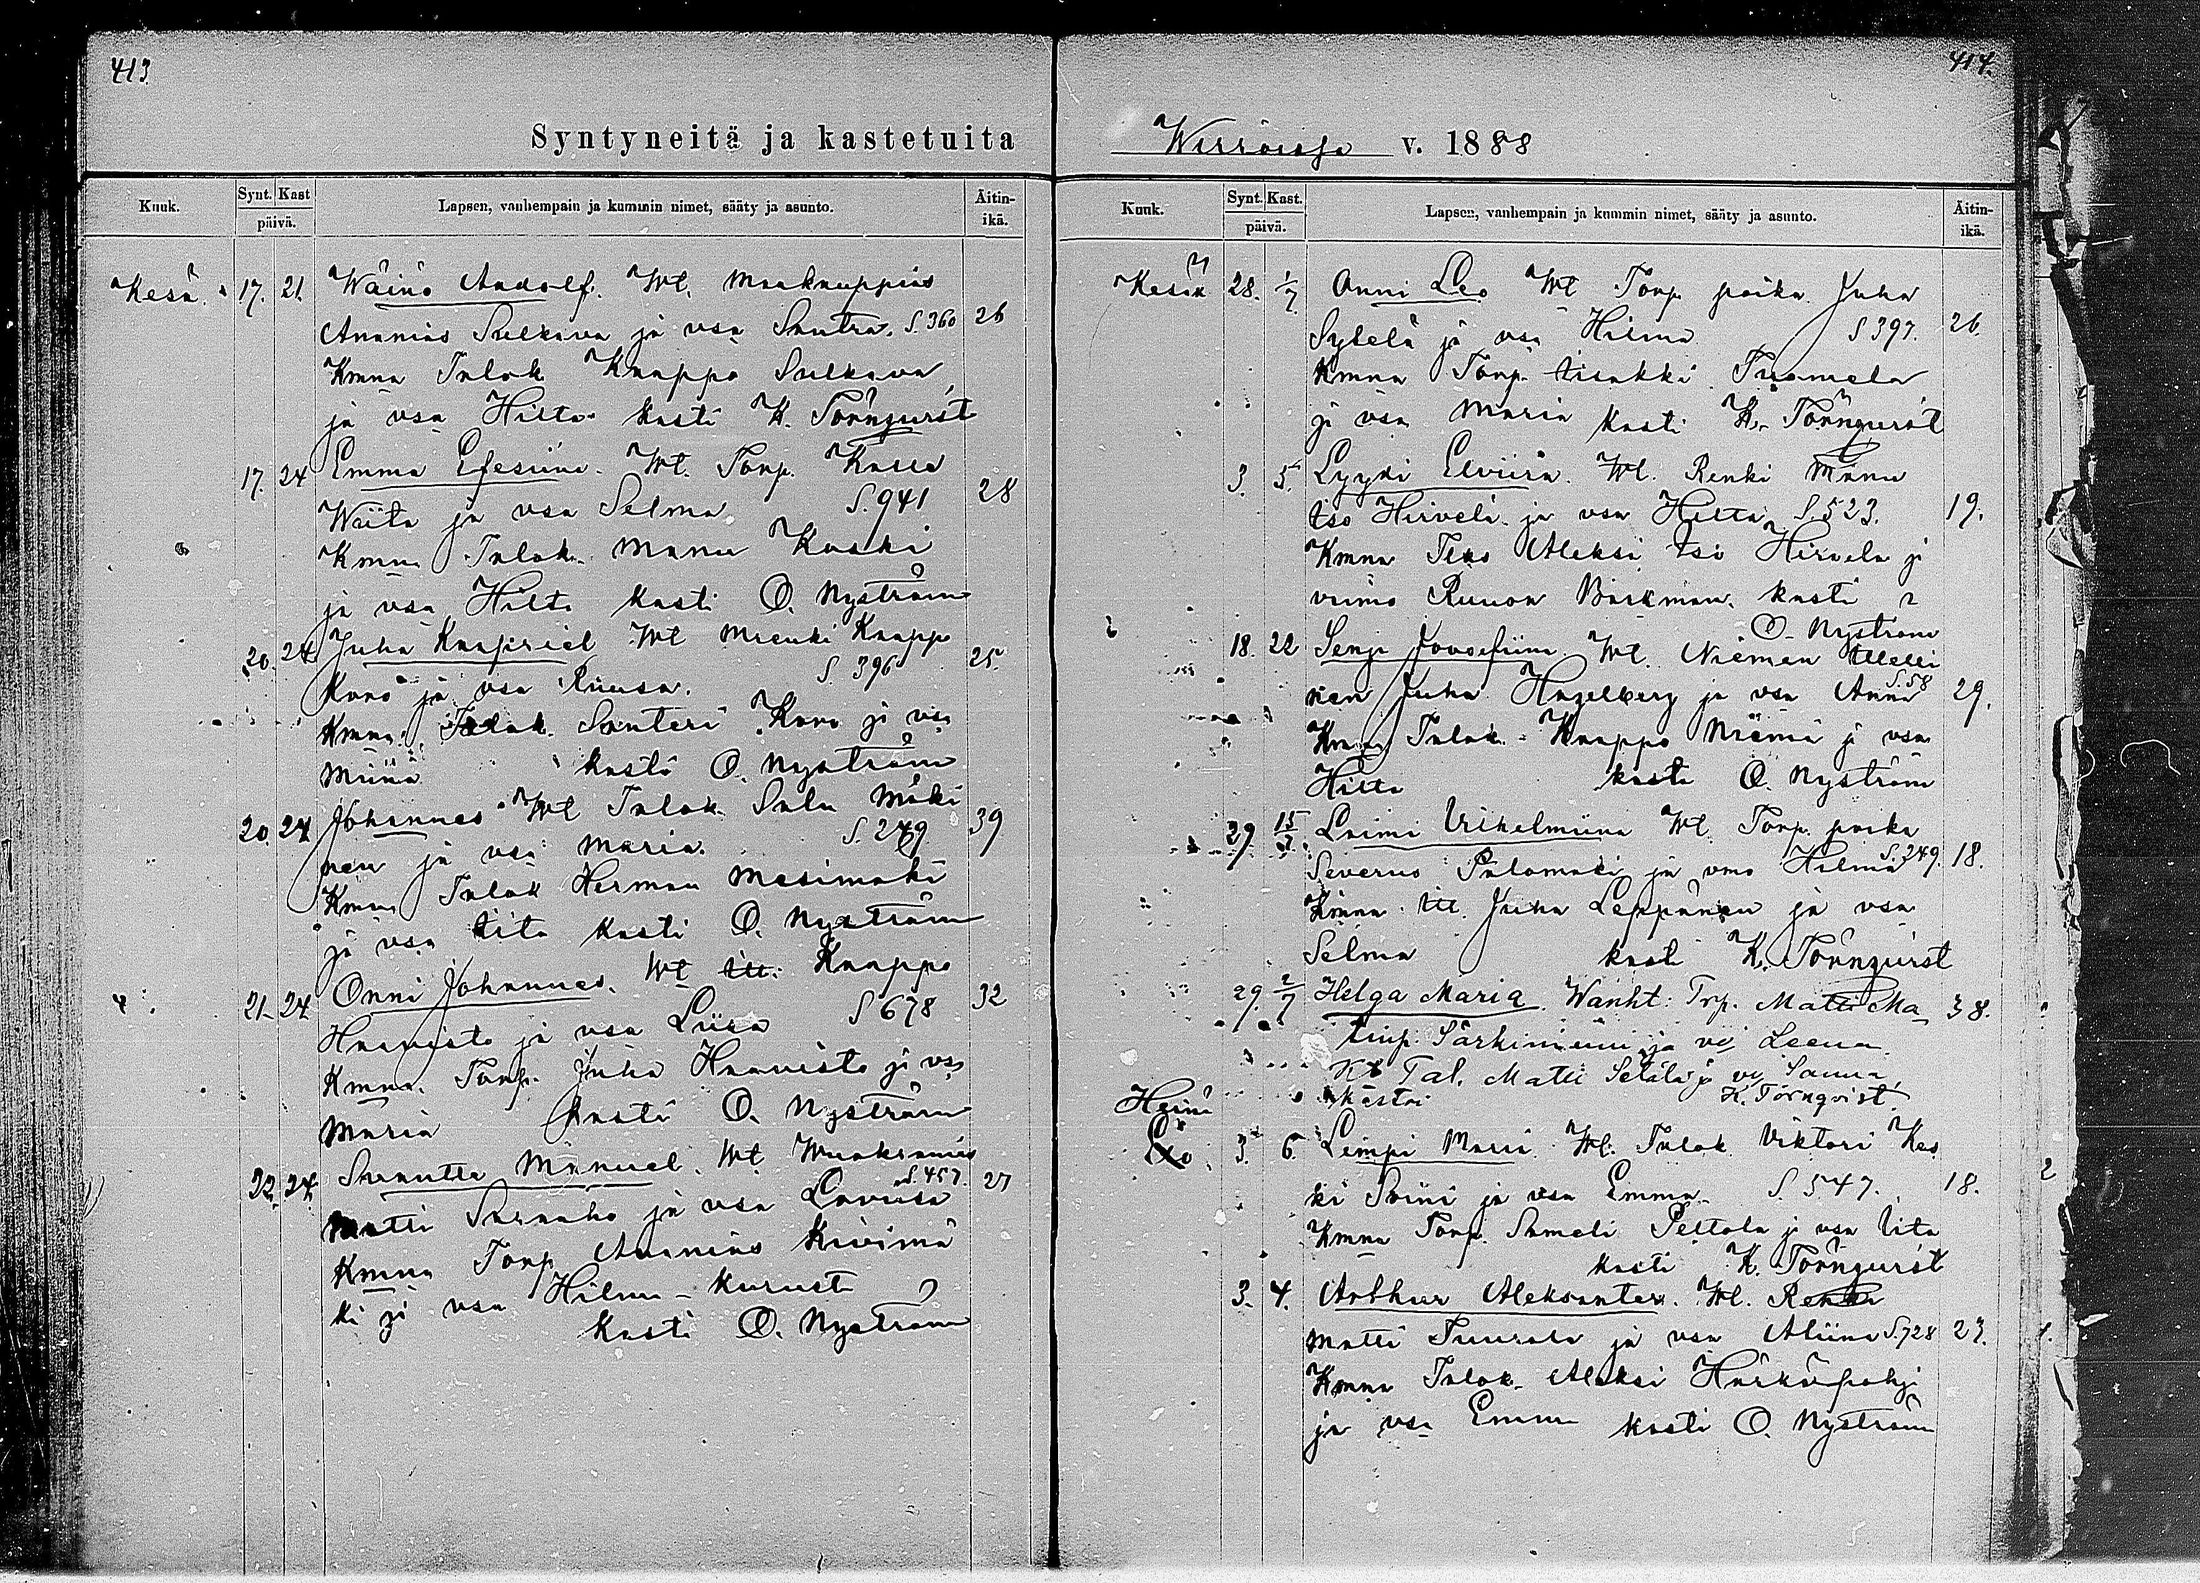 413
414.
Syntyneitä ja kastetuita
Wirroissa v. 1888
Kuuk. Synt. Kast päivä. Lapsen, vanhempain ja kummin nimet, sääty ja asunto. Äitin-ikä.
Kesä. 17. 21. Wäinö Andolf. Wt.
Ananias Sulkava ja vsa Santra. S. 360 26
Kmna Talok Kaappo Sulkava
ja vsa Hilta kasti K. Törnqvist
17. 24 Emma Efesiina. Wt. Torp. Kalle
Waita ja vsa Selma S. 941 28
Kmna Talok. Manu Koski
ja vsa Hilta kasti O. Nyström
20. 24 Juha Kaapriel Wt Kaappo
Karo ja vsa Ruusa. S. 396 25.
Kmna Talok. Santeri Karo ja vsa
Miina kasti O. Nyström
20. 24 Johannes Wt Talok Salu Mäki
nen ja vsa Maria. S. 249 39
Kmna Talok Herman Mesimäki
ja vsa Iita kasti O. Nyström
21. 24. Onni Johannes. Wt Itl. Kaappo
Haavisto ja vsa Liisa S 678 32
Kmna. Torp. Juha Haavisto ja vsa
Maria kasti O. Nyström
22. 24. Manuel. Wt
Matti ja vsa Loviisa S. 457. 27
Kmna Torp Ananias Kivimä
ki ja vsa Hilma
kasti O. Nyström
Kuuk. Synt. Kast. päivä. Lapsen, vanhempain ja kummin nimet, sääty ja asunto. Äitin-ikä.
Kesä 28. 1/7. Onni Leo Wt Torp poika Juha
Sytelä ja vsa Hilma S 397. 26.
Kmna Torp. Iisakki Tuomela
ja vsa Maria kasti K. Törnqvist
3. 5. Lyydi Elviira. Wt. Renki Manu
Iso Hirvelä ja vsa Hilta S. 523. 19.
Kmna Aleksi Iso Hirvela ja
vaimo Ruusa Backman kasti
O. Nyström
18. 22 Senja Joosefiina. Wt. Niemen
Juha Hagelberg ja vsa Anna S. 58 29.
Kmna Talok. Kaappo Niemi ja vsa
Hilta kasti O. Nyström
29. 15/7. Laimi Vilhelmiina Wt. Torp. poika
Severus Palomäki ja vmo Hilma S. 249. 18.
Kmna Itl. Juha Leppänen ja vsa
Selma kasti K. Törnqvist
29. 2/7 Helga Maria. Wanht: Trp. Matti Ma 38.
tinp. Särkiniemi ja vs Leena.
Kt Tal. Matti Setälä ja vs Sanna,
kastoi K. Törnqvist.
Heinä
3. 6. Lempi Maria. Wt. Talok Viktori Kes
ki Soini ja vsa Emma S. 547. 18.
Kmna Torp. Sameli Peltola ja vsa Iita
kasti K. Törnqvist
3. 4. Arthur Aleksanter. Wt. Renki
Matti Tuurala ja vsa Aliina S. 728 23.
Kmna Talok. Aleksi Härkäpohja
ja vsa Emma kasti O. Nyström